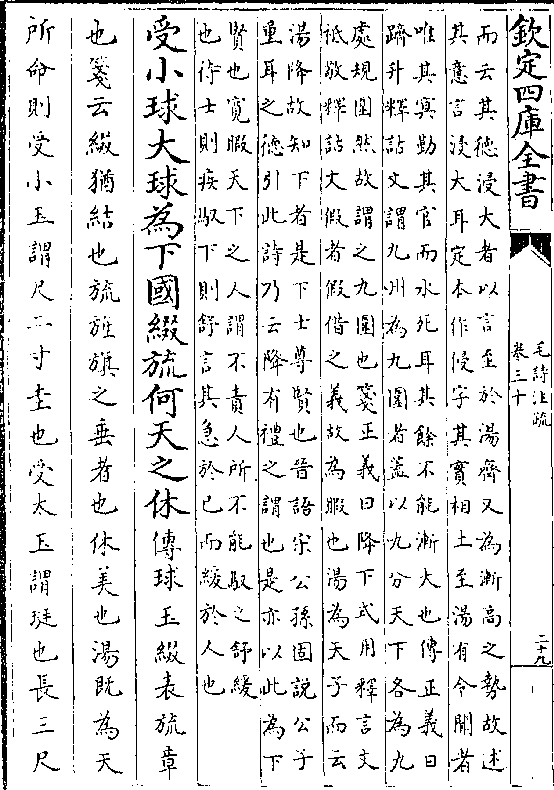 欽定四庫全書
毛詩注疏
卷三十
二十九
而云其德浸大者以言至於湯齊又為漸高之勢故述
其意言浸大耳定本作侵字其實相土至湯有令聞者
唯其冥勤其官而水死耳其餘不能漸大也傳正義曰
躋升釋詁文謂九州為九圍者蓋以九分天下各為九
處規圍然故謂之九圍也箋正義曰降下式用釋言文
祗敬釋詁文假者假借之義故為暇也湯為天子而云
湯降故知下者是下士尊賢也晉語宋公孫固說公子
重耳之德引此詩乃云降有禮之謂也是亦以此為下
賢也寬暇天下之人謂不責人所不能馭之舒緩
也待士則疾馭下則舒言其急於己而緩於人也
受小球大球為下國綴旒何天之休傳球玉綴表旒章
也箋云綴猶結也旒旌旗之垂者也休美也湯既為天
所命則受小玉謂尺二寸圭也受大玉謂珽也長三尺